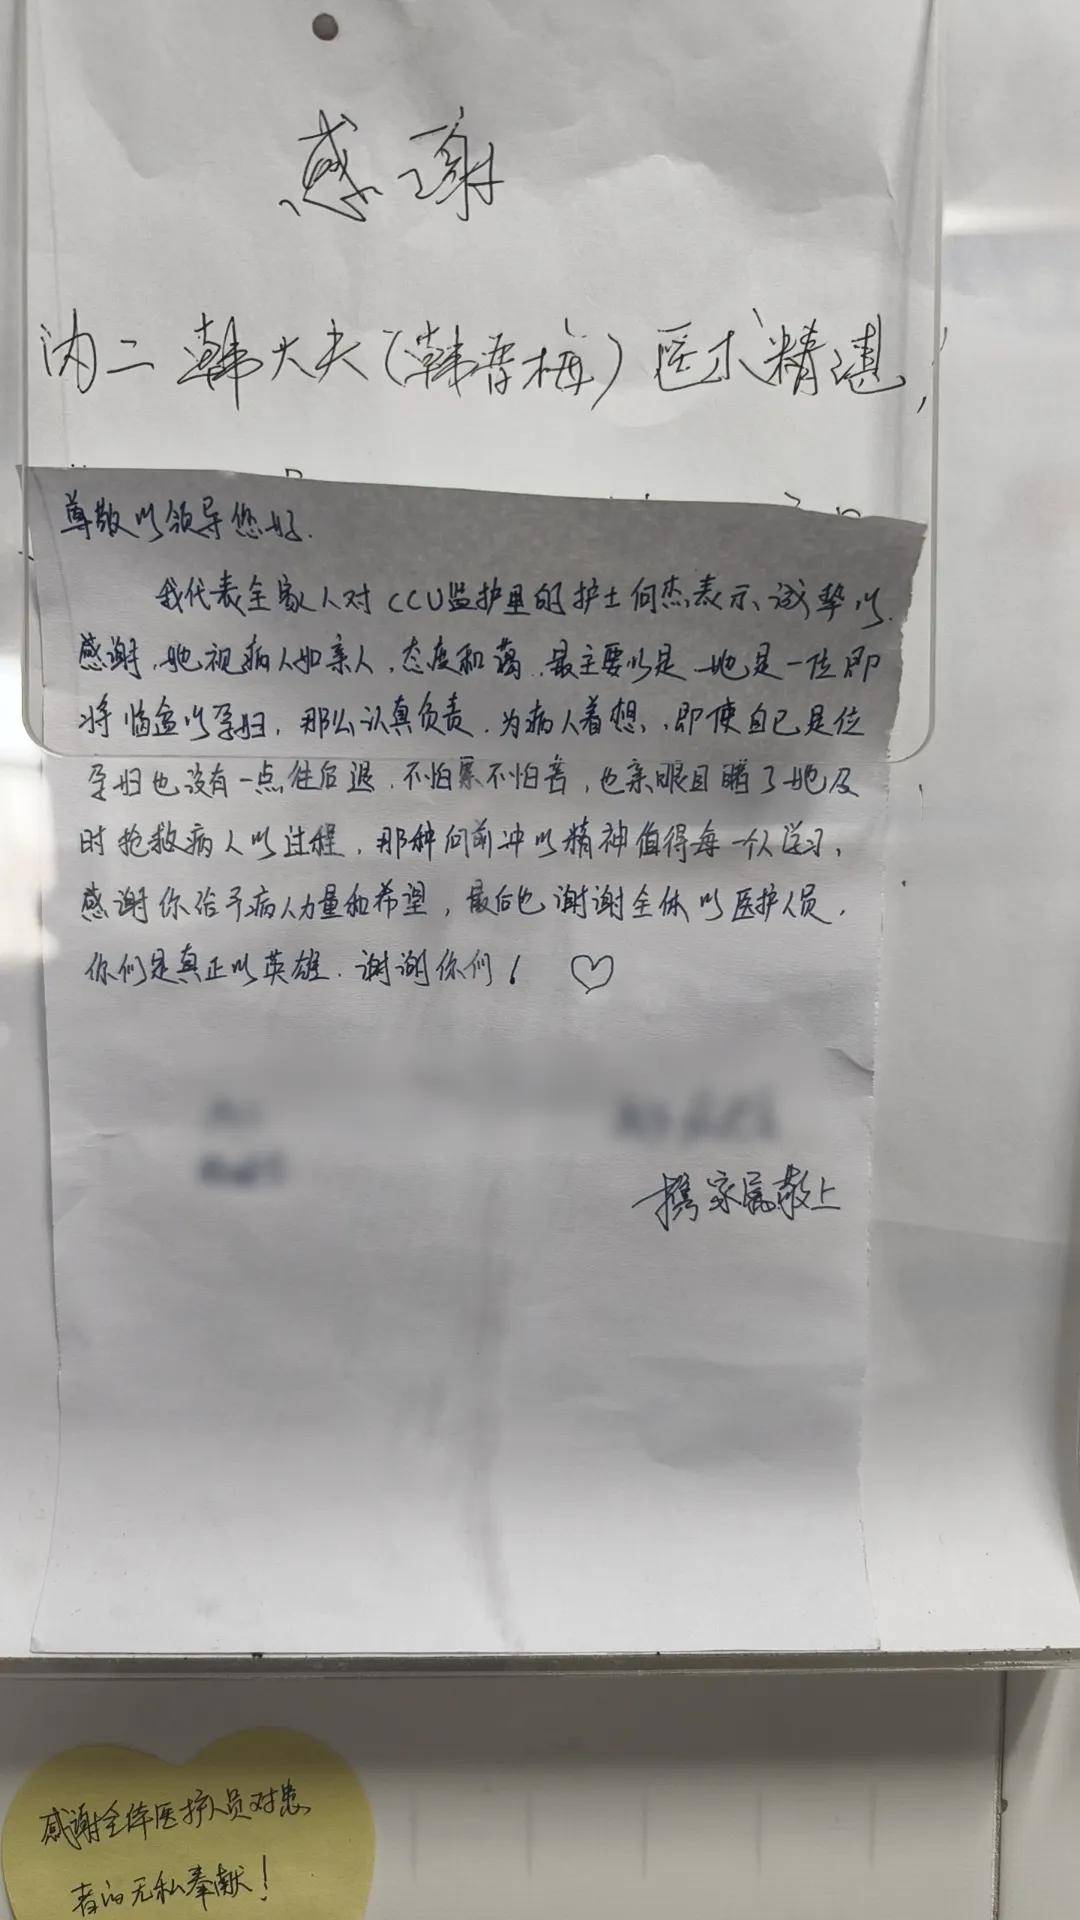 感谢
内二韩大夫(韩春梅)医术精湛,
尊敬的领导您好.
我代表全家人对CCU监护里的护士何杰表示诚挚的
感谢,她视病人如亲人,态度和蔼.最主要的是她是一位即
将临盆的孕妇,那么认真负责.为病人着想,即使自己是位
孕妇也没有一点往后退.不怕累不怕苦,也亲眼目睹了她及
时抢救病人的过程,那种向前冲的精神值得每一个人学习,
感谢你给予病人力量和希望,最后也谢谢全体的医护人员.
你们是真正的英雄.谢谢你们!
携家属敬上
感谢全体医护人员对患
者的无私奉献!